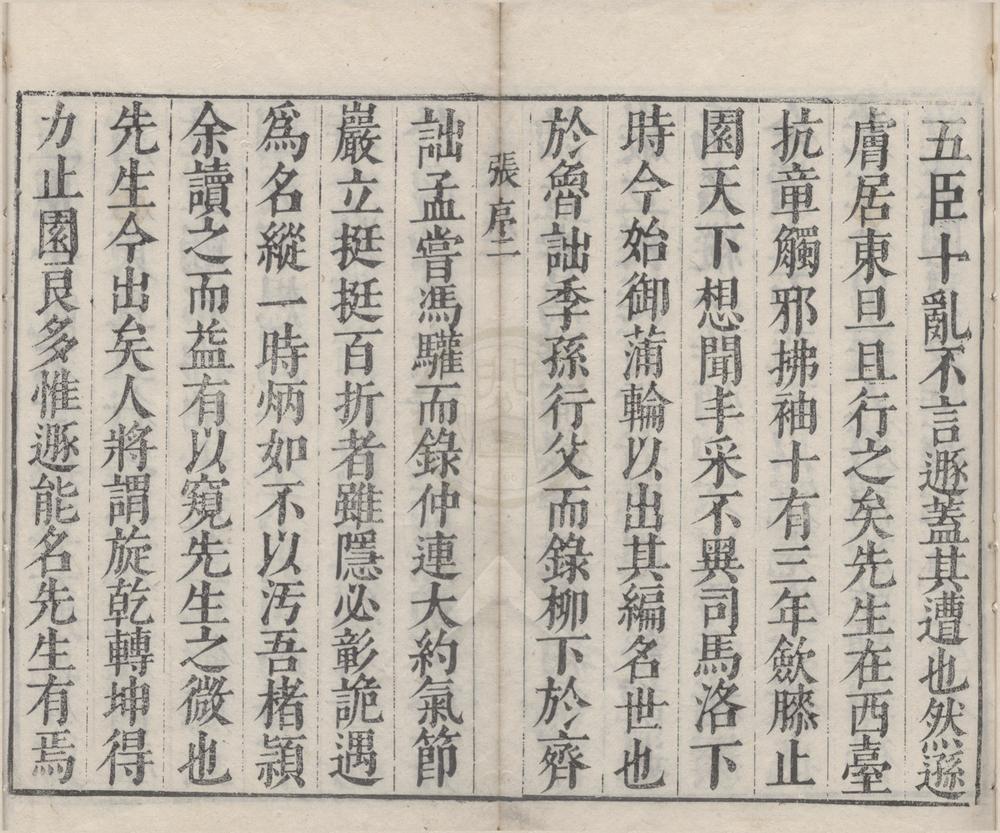 五臣十亂不言遯蓋其遭也然遜
膚居東旦且行之矣先生在西臺
抗章觸邪拂袖十有三年歛膝止
園天下想聞丰采不異司馬洛下
時今始御蒲輪以出其編名世也
於魯詘季孫行父而錄柳下於齊
張序二
詘孟嘗馮驩而錄仲連大約氣節
巖立挺挺百折者雖隱必彰詭遇
爲名縱一時炳如不以汚吾楮穎
余讀之而益有以窺先生之微也
先生今出矣人將謂旋乾轉坤得
力止園艮多惟遯能名先生有焉